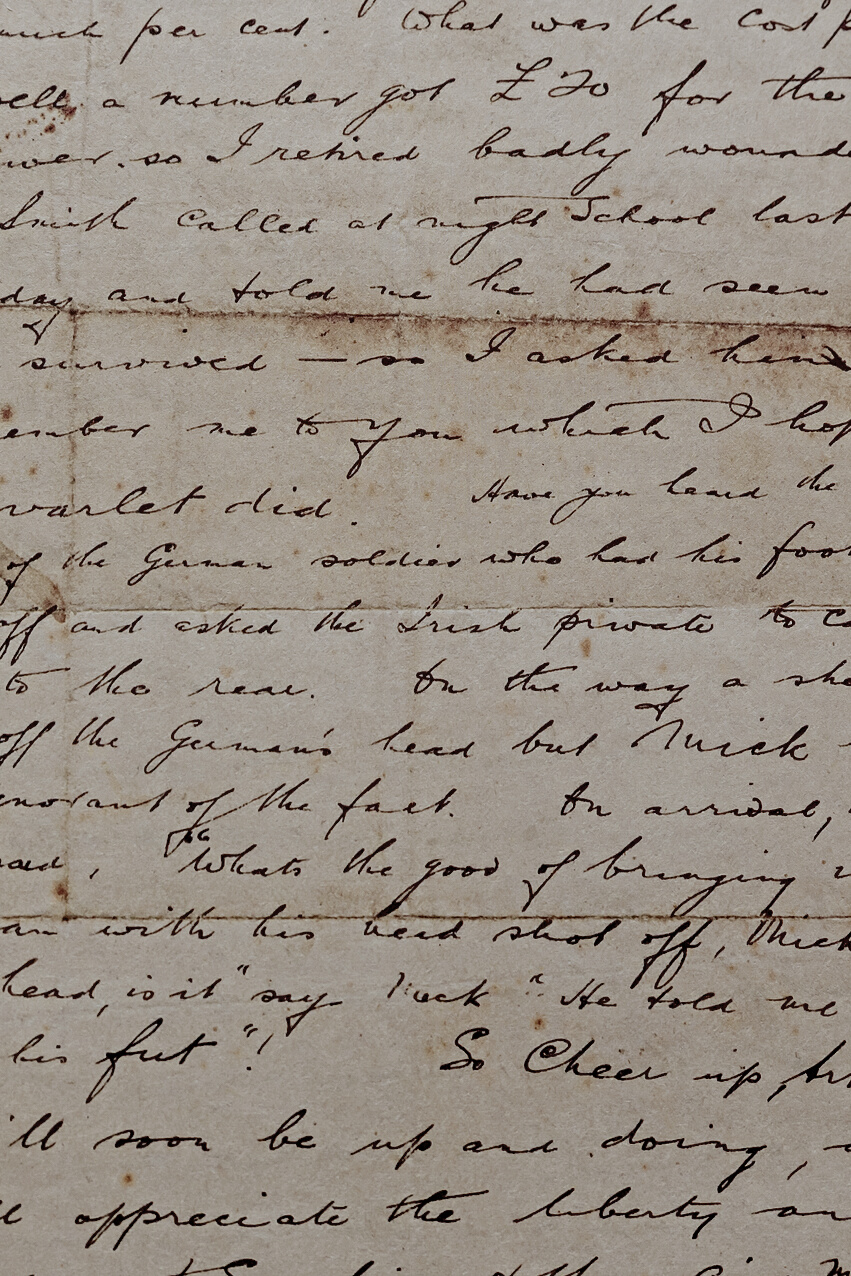 much per cent. What was the cost p
well a number got £20 for the
wer. so I retired badly wounde
Smith called at night School last
day and told me he had seen
survived — so I asked him
ember me to you which I hop
varlet did. Have you heard the
of the German soldier who had his foot
off and asked the Irish private to ca
to the rear. On the way a she
off the German's head but Mick
norant of the fact. On arrival,
said, "Whats the good of bringing
an with his head shot off, Mick
head, is it" say Mick "He told me
his fut"! So Cheer up, Ar
'll soon be up and doing,
appreciate the liberty an